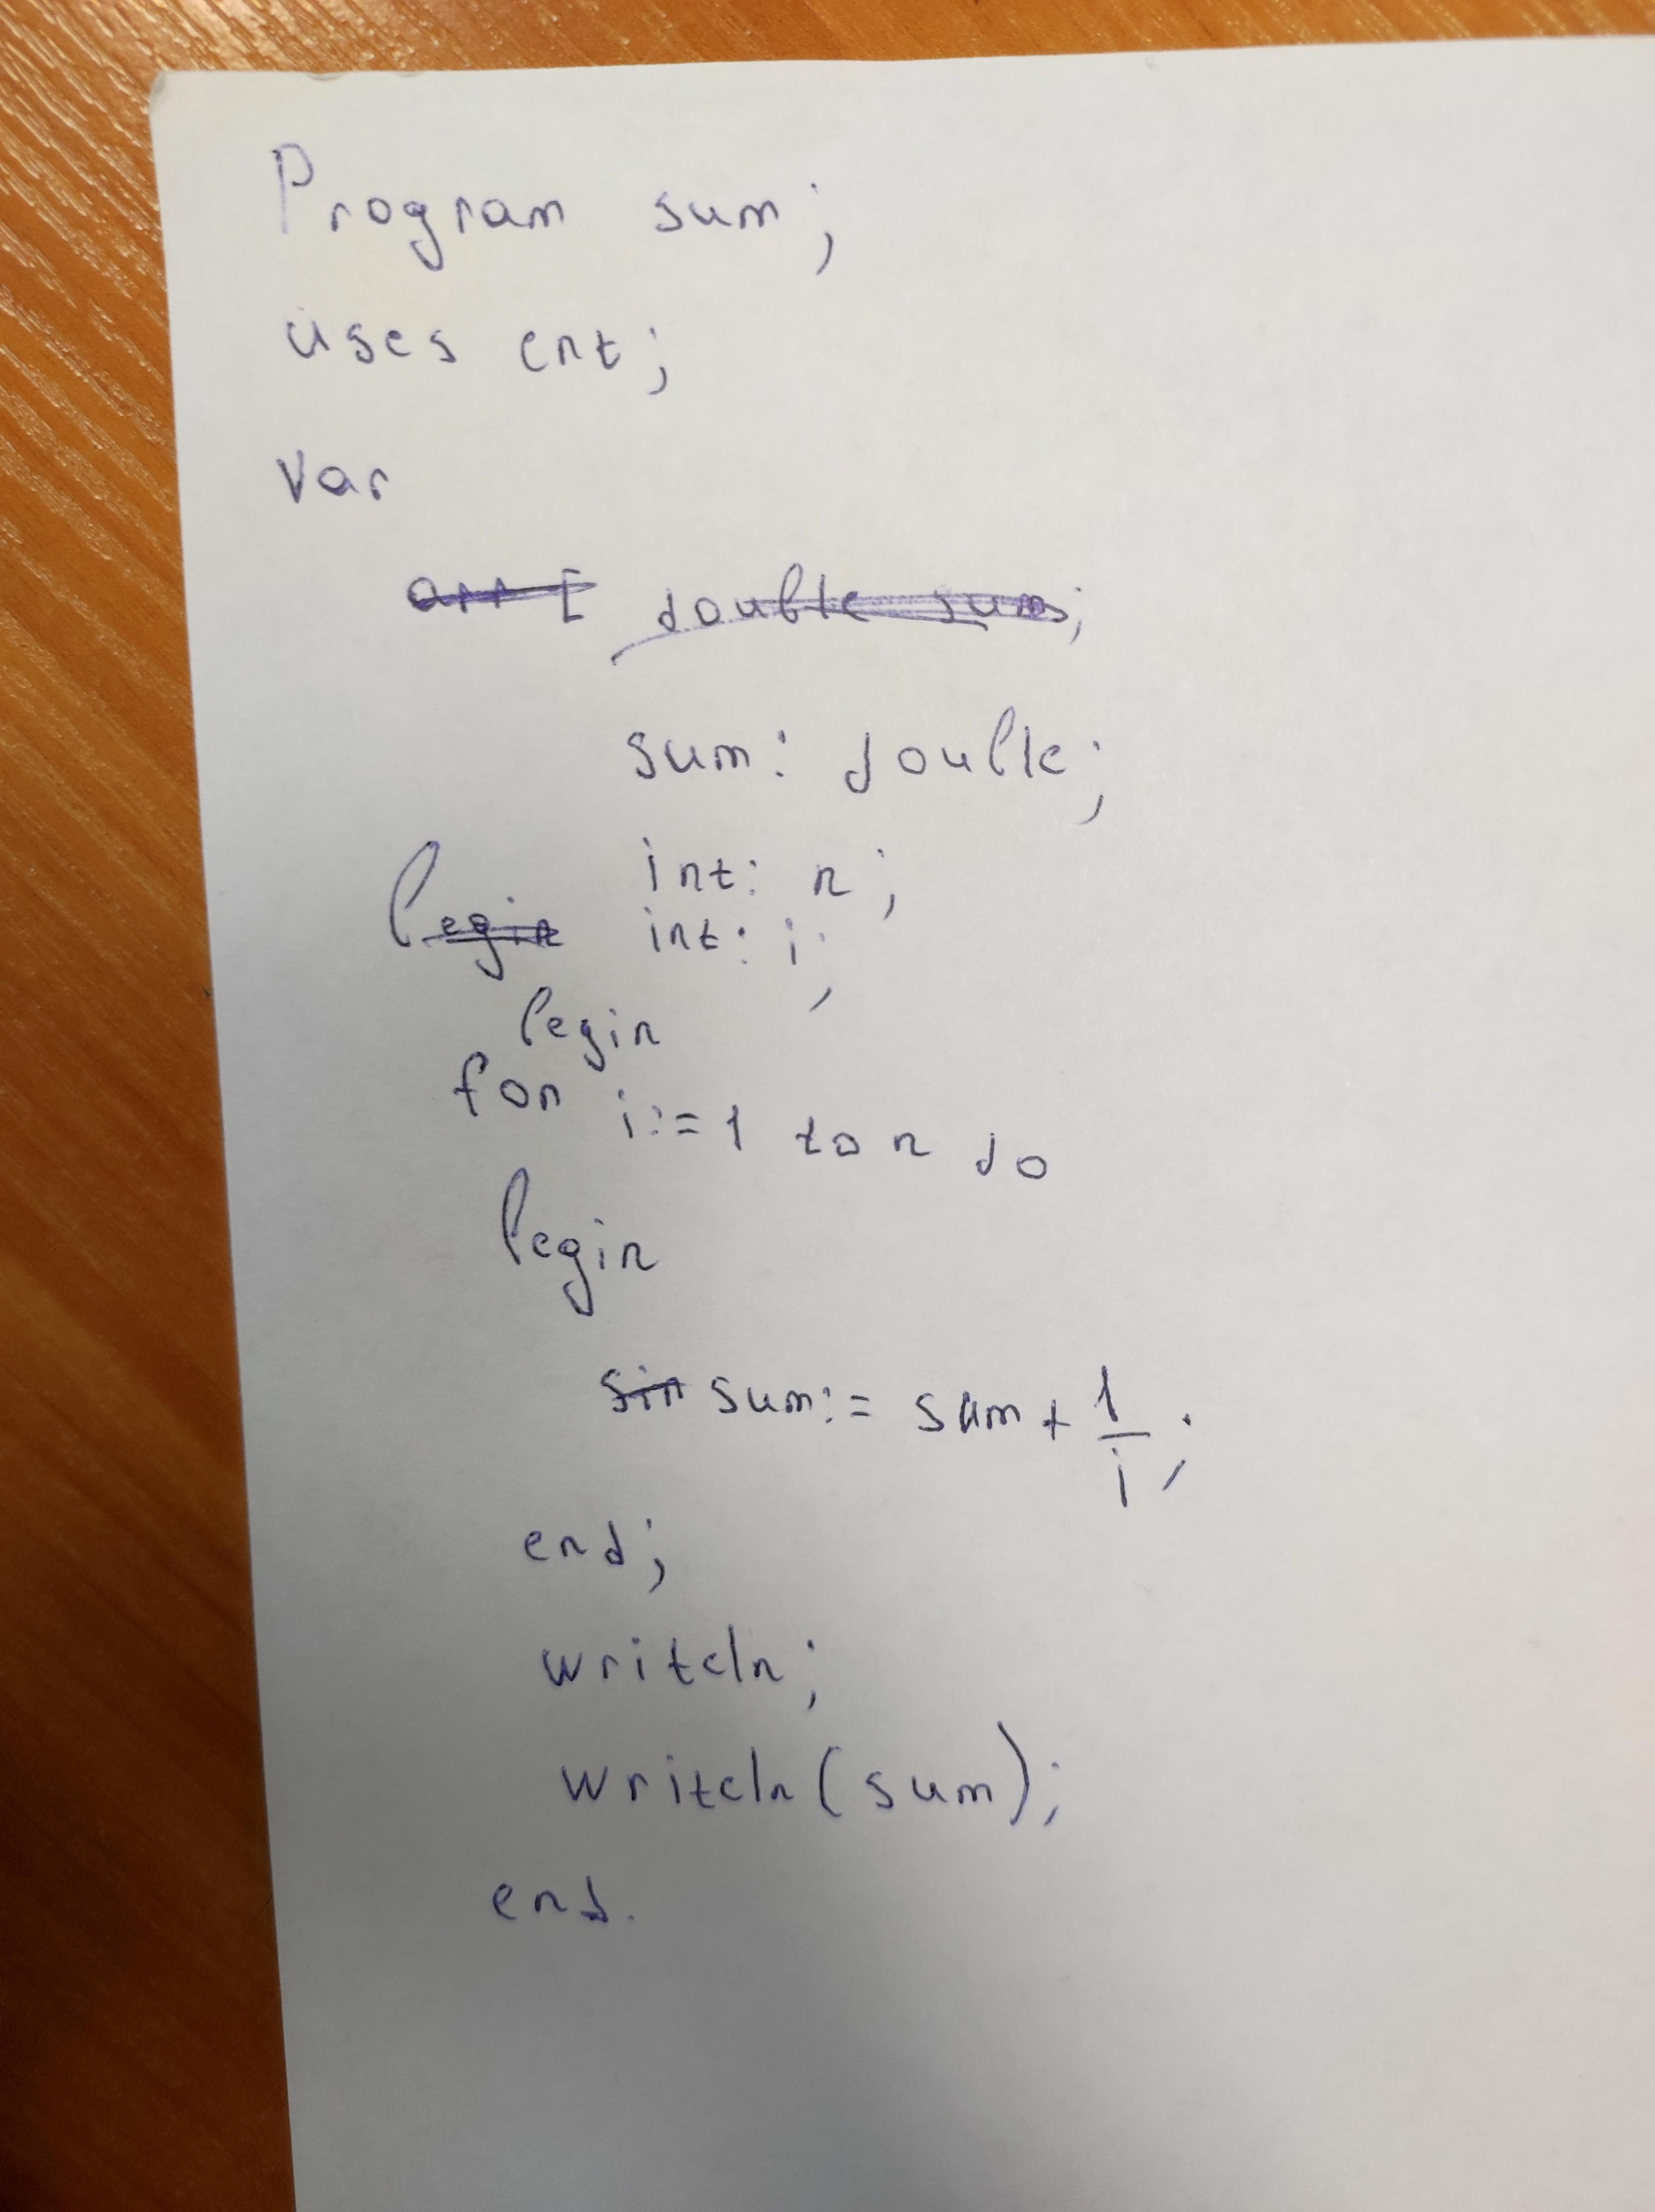 Program sum;
uses crt;
Var
arr [ double sum;
sum: double;
int: n;
begin int: i;
begin
for i:=1 to n do
begin
sin sum:= sum + 1/i;
end;
writeln;
writeln(sum);
end.